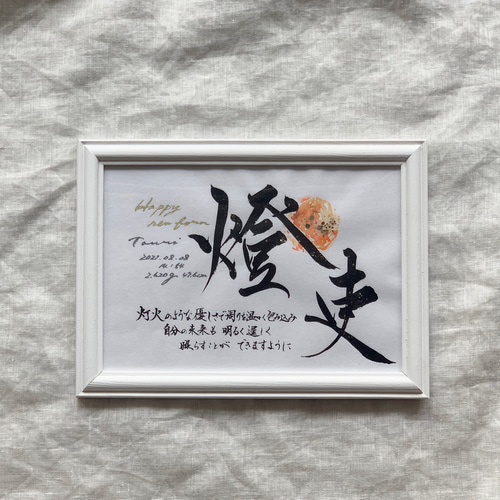 燈吏
Happy
newborn
2021.08.08
14:54
2,620g 47.6cm
灯火のような優しさで周りを温かく包み込み
自分の未来も 明るく逞しく
照らすことが できますように